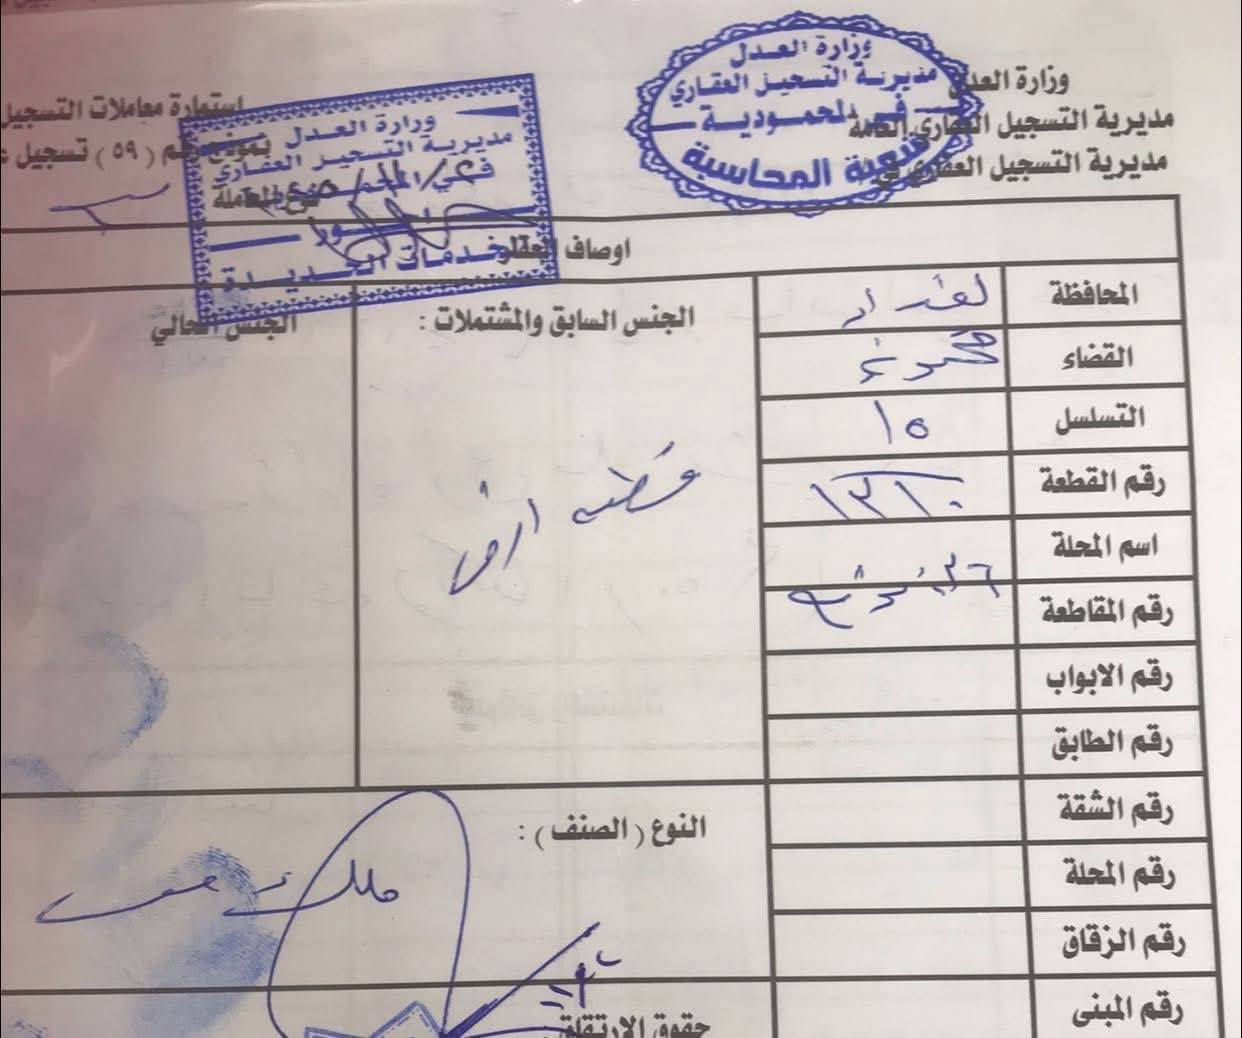 وزارة العدل
مديرية التسجيل العقاري العامة
مديرية التسجيل العقاري في
وزارة العدل
مديرية التسجيل العقاري
في المحمودية
شعبة المحاسبة
استمارة معاملات التسجيل
نموذج رقم (٥٩) تسجيل
نوع المعاملة
وزارة العدل
مديرية التسجيل العقاري
في المحمودية
الخدمات الجديدة
اوصاف العقار
المحافظة بغداد
القضاء
التسلسل ١٥
رقم القطعة
اسم المحلة
رقم المقاطعة
رقم الابواب
رقم الطابق
رقم الشقة
رقم المحلة
رقم الزقاق
رقم المبنى
الجنس السابق والمشتملات :
قطعة ارض
الجنس الحالي
النوع (الصنف) :
ملك
حقوق الارتفاق